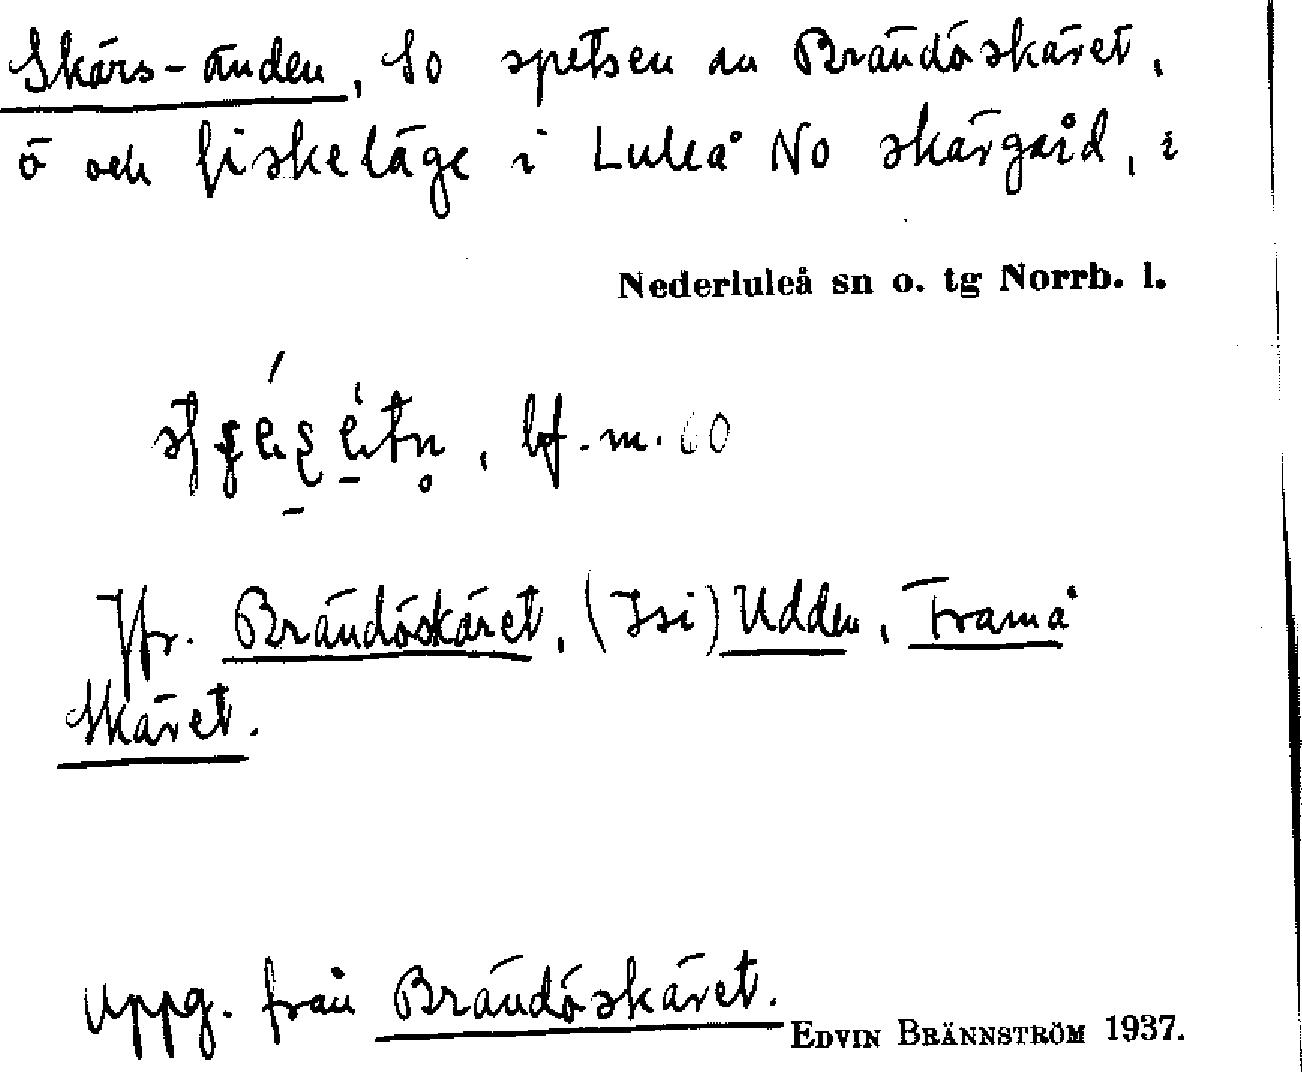 Skärs-änden, So spetsen av Brändöskäret,
ö och fiskeläge i Luleå No skärgård, i
Nederluleå sn o. tg Norrb. l.
, bf. m.
Jfr. Brändöskäret, (Isi) Udden, Framå
Skäret.
Uppg. från Brändöskäret.
EDVIN BRÄNNSTRÖM 1937.